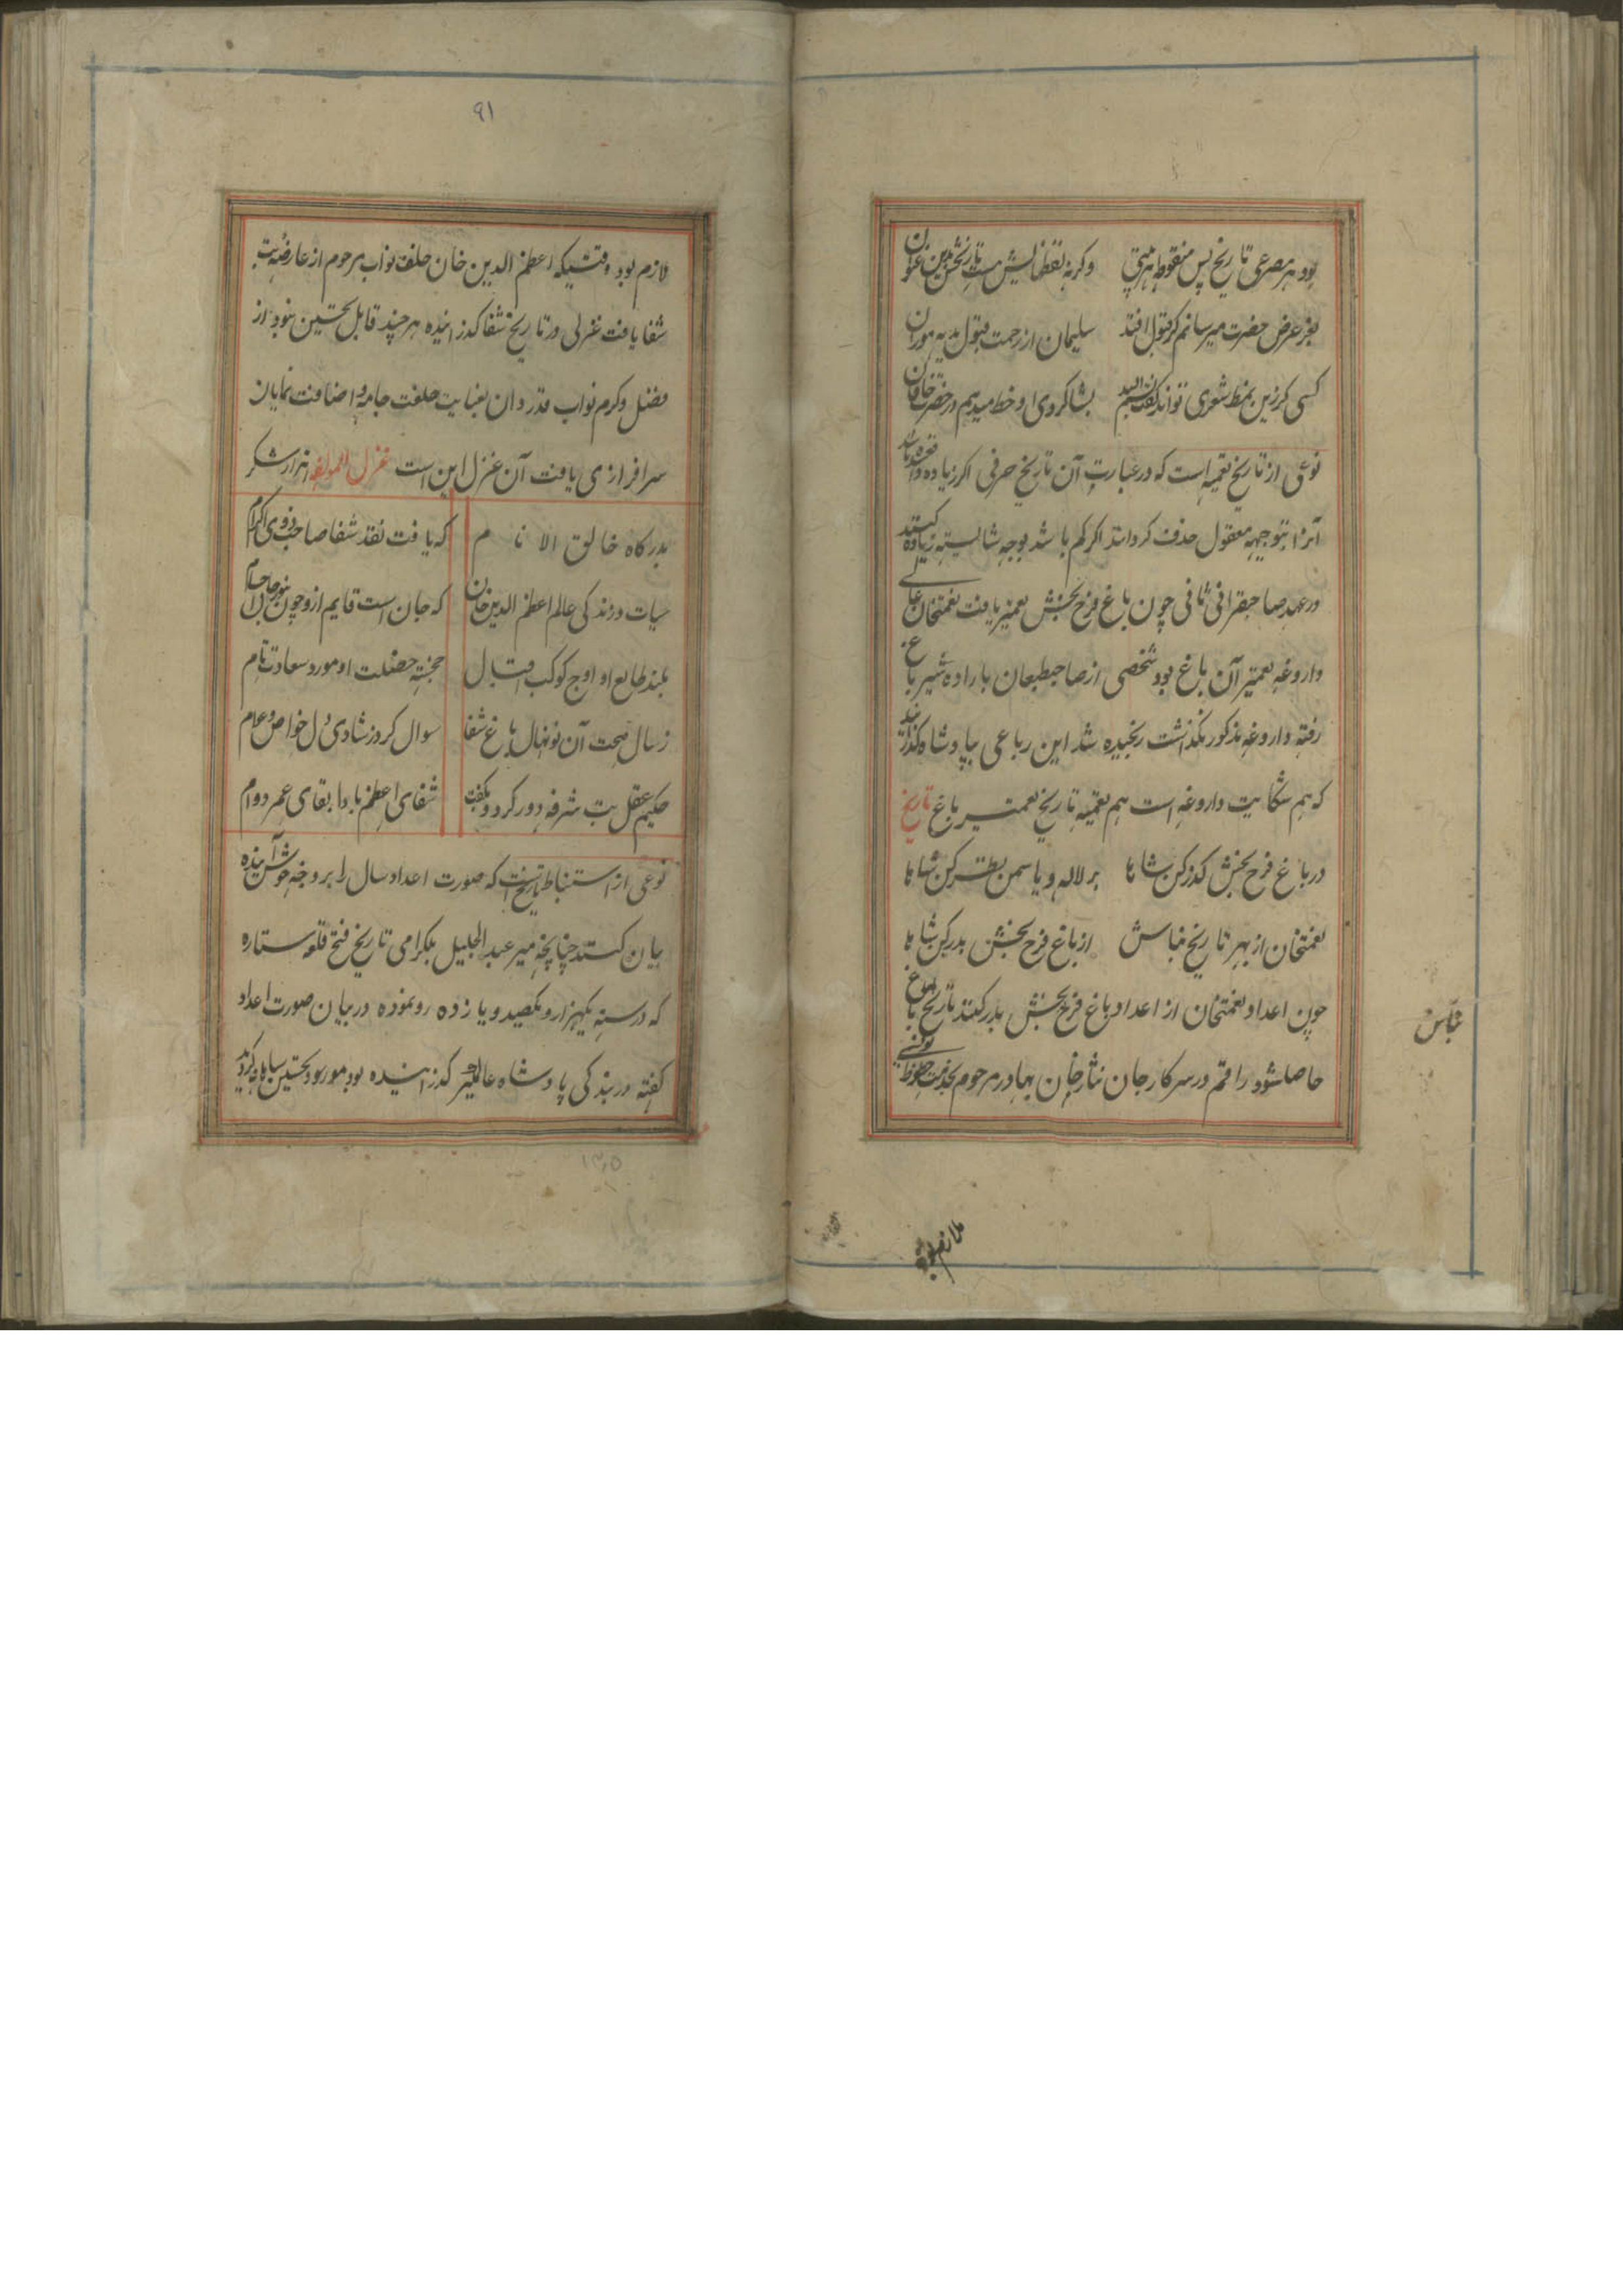 بود هر مصرعی تاریخ پس منقوط هر بیتی وگرنه نقطهایش هست تاریخش بدین عنوان
بغز عرض حضرت میرسانم گر قبول افتد سلیمان از رحمت قبول هدیه موران
کسی کزین نمط شعری تواند گفت بشاگردی او خط میدهم در حضرت خاقان
نوعی از تاریخ تعمیه است که در عبارت آن تاریخ حرفی اگر زیاده
آنرا بتوجیه معقول حذف کردانند اگر کم باشد بوجه شایسته زیاده کنند
در عهد صاحبقرانی ثانی چون باغ فرح بخش تعمیر یافت نعمتخان عالی
داروغه تعمیر آن باغ بود شخصی از صاحبطبعان باراده سیر باغ
رفته داروغه مذکور نگذاشت رنجیده شد این رباعی بپادشاه گذرانید
که هم شکایت داروغه است هم تعمیه تاریخ تعمیر باغ تاریخ
در باغ فرح بخش گذر کن شاها بر لاله و یاسمن نظر کن شاها
نعمتخان از بهر تاریخ بناش از باغ فرح بخش بدر کن شاها
چون اعداد نعمتخان از اعداد باغ فرح بخش بدر کنند تاریخ باغ
حاصل شود راقم در سرکار جان نثار خان بهادر مرحوم بخدمت
بناس
ملازم بود
۹۱
لازم بود وقتیکه اعظم الدین خان خلف نواب مرحوم از عارضه تب
شفا یافت غزلی در تاریخ شفا گذرانیده هر چند قابل تحسین نبود از
فضل و کرم نواب قدردان بعنایت خلعت جامه و اضافت نمایان
سرافرازی یافت آن غزل این است غزل لمولفه هزار شکر
بدرگاه خالق الانام که یافت نقد شفا صاحب ذوی الاکرام
حیات و زندگی عالم اعظم الدین خان که جان است قایم ازو چون بنور جان اجسام
بلند طالع او اوج کوکب اقبال خجسته خصلت او مورد سعادت تام
ز سال صحت آن نونهال باغ شفا سوال کرد ز شادی دل خواص و عوام
حکیم عقل تب شرفه دور کرد و بگفت شفای اعظم بادا بقای عمر دوام
نوعی از استنباط تاریخ آنست که صورت اعداد سال را بر وجه خوش آینده
بیان کنند چنانچه میر عبد الجلیل بلگرامی تاریخ فتح قلعه ستاره
که در سنه یکهزار و یکصد و یازده رو نموده در بیان صورت اعداد
گفته در بندگی پادشاه عالمگیر گذرانیده بود مورد تحسین
۱۳۵